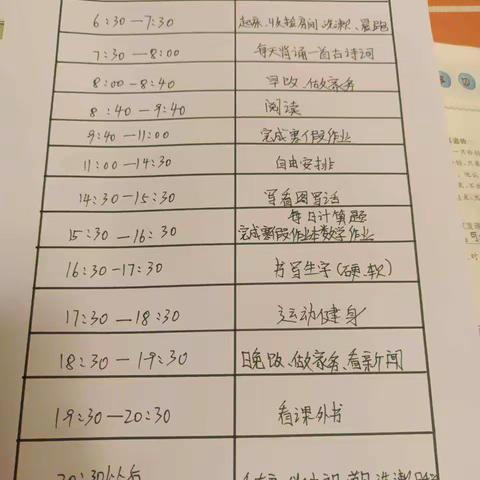 6:30—7:30 起床、收拾房间、洗漱、晨跑
7:30—8:00 每天背诵一首古诗词
8:00—8:40 早饭、做家务
8:40—9:40 阅读
9:40—11:00 完成寒假作业
11:00—14:30 自由安排
14:30—15:30 写看图写话
每日计算题
15:30—16:30 完成寒假作业本数学作业
16:30-17:30 书写生字(硬、软)
17:30—18:30 运动健身
18:30—19:30 晚饭、做家务、看新闻
19:30—20:30 看课外书
20:30以后